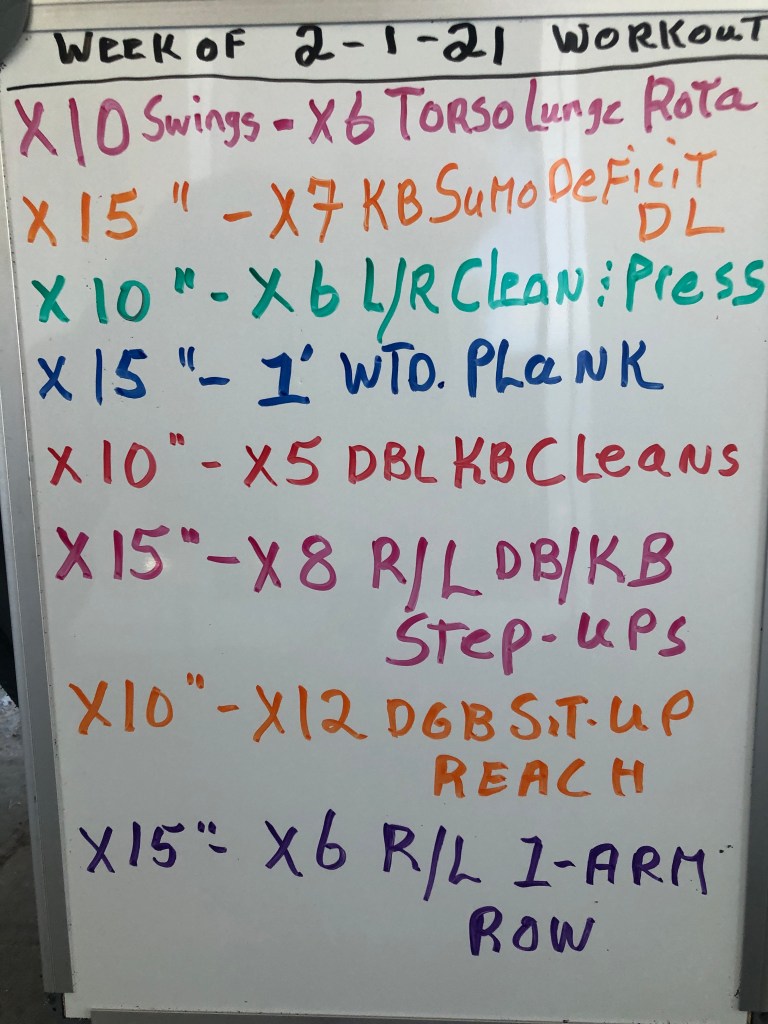 WEEK OF 2-1-21 WORKOUT
X10 Swings - X6 TORSO Lunge Rota
X15 " - X7 KB SuMo DeFiciT
DL
X10 " - X6 L/R CLean & Press
X15 " - 1' WTD. PLaNK
X10 " - X5 DBL KB CLeans
X15 " - X8 R/L DB/KB
STep-uPs
X10 " - X12 DGB SiT-uP
REACH
X15 " - X6 R/L 1-ARM
ROW